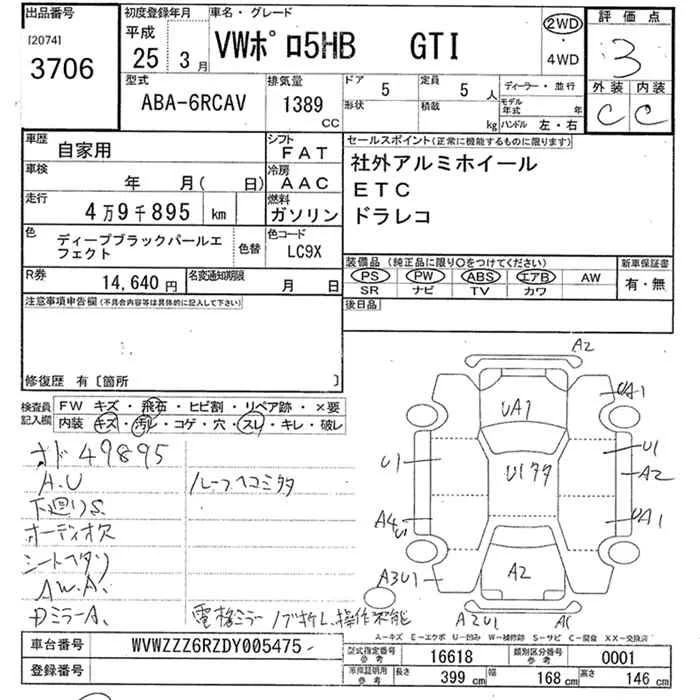 出品番号
[2074]
3706
初度登録年月
平成
25年 3月
車名・グレード
VWポロ5HB GTI
2WD
・
4WD
評価点
3
外装 内装
C C
型式
ABA-6RCAV
排気量
1389
CC
ドア 5
定員 5人
形状
積載 kg
ディーラー・並行
モデル年式 年
ハンドル 左・右
車歴
自家用
車検
年 月( 日)
走行
4万9千895 km
色
ディープブラックパールエフェクト
色替
シフト
FAT
冷房
AAC
燃料
ガソリン
色コード
LC9X
R券
14,640円
名変通知期限
月 日
セールスポイント(正常に機能するものに限ります)
社外アルミホイール
ETC
ドラレコ
装備品 (純正品に限り○をつけてください)
PS PW ABS エアB AW
SR ナビ TV カワ
新車保証書
有・無
後日品
注意事項申告欄(不具合内容等は具体的に記入して下さい)
修復歴 有〔箇所 〕
検査員
記入欄
FW キズ・飛石・ヒビ割・リペア跡・×要
内装 キズ・汚レ・コゲ・穴・スレ・キレ・破レ
オド 49895
A.U
ルーフヘコミ
下廻りS
オーディオ欠
シートヘタリ
AW.A.
Dミラー A.
電格ミラー ノブ折レ、操作不能
A2
UA1
UA1
U1
U1
A2
A4
UA1
A3U1
A2
A2U1
A1
A−キズ E−エクボ U−凹み W−補修跡 S−サビ C−腐食 XX−交換済
車台番号
WVWZZZ6RZDY005475
登録番号
型式指定番号
参考
16618
類別区分番号
参考
0001
車検証明用
参考
長さ 399 cm
幅 168 cm
高さ 146 cm